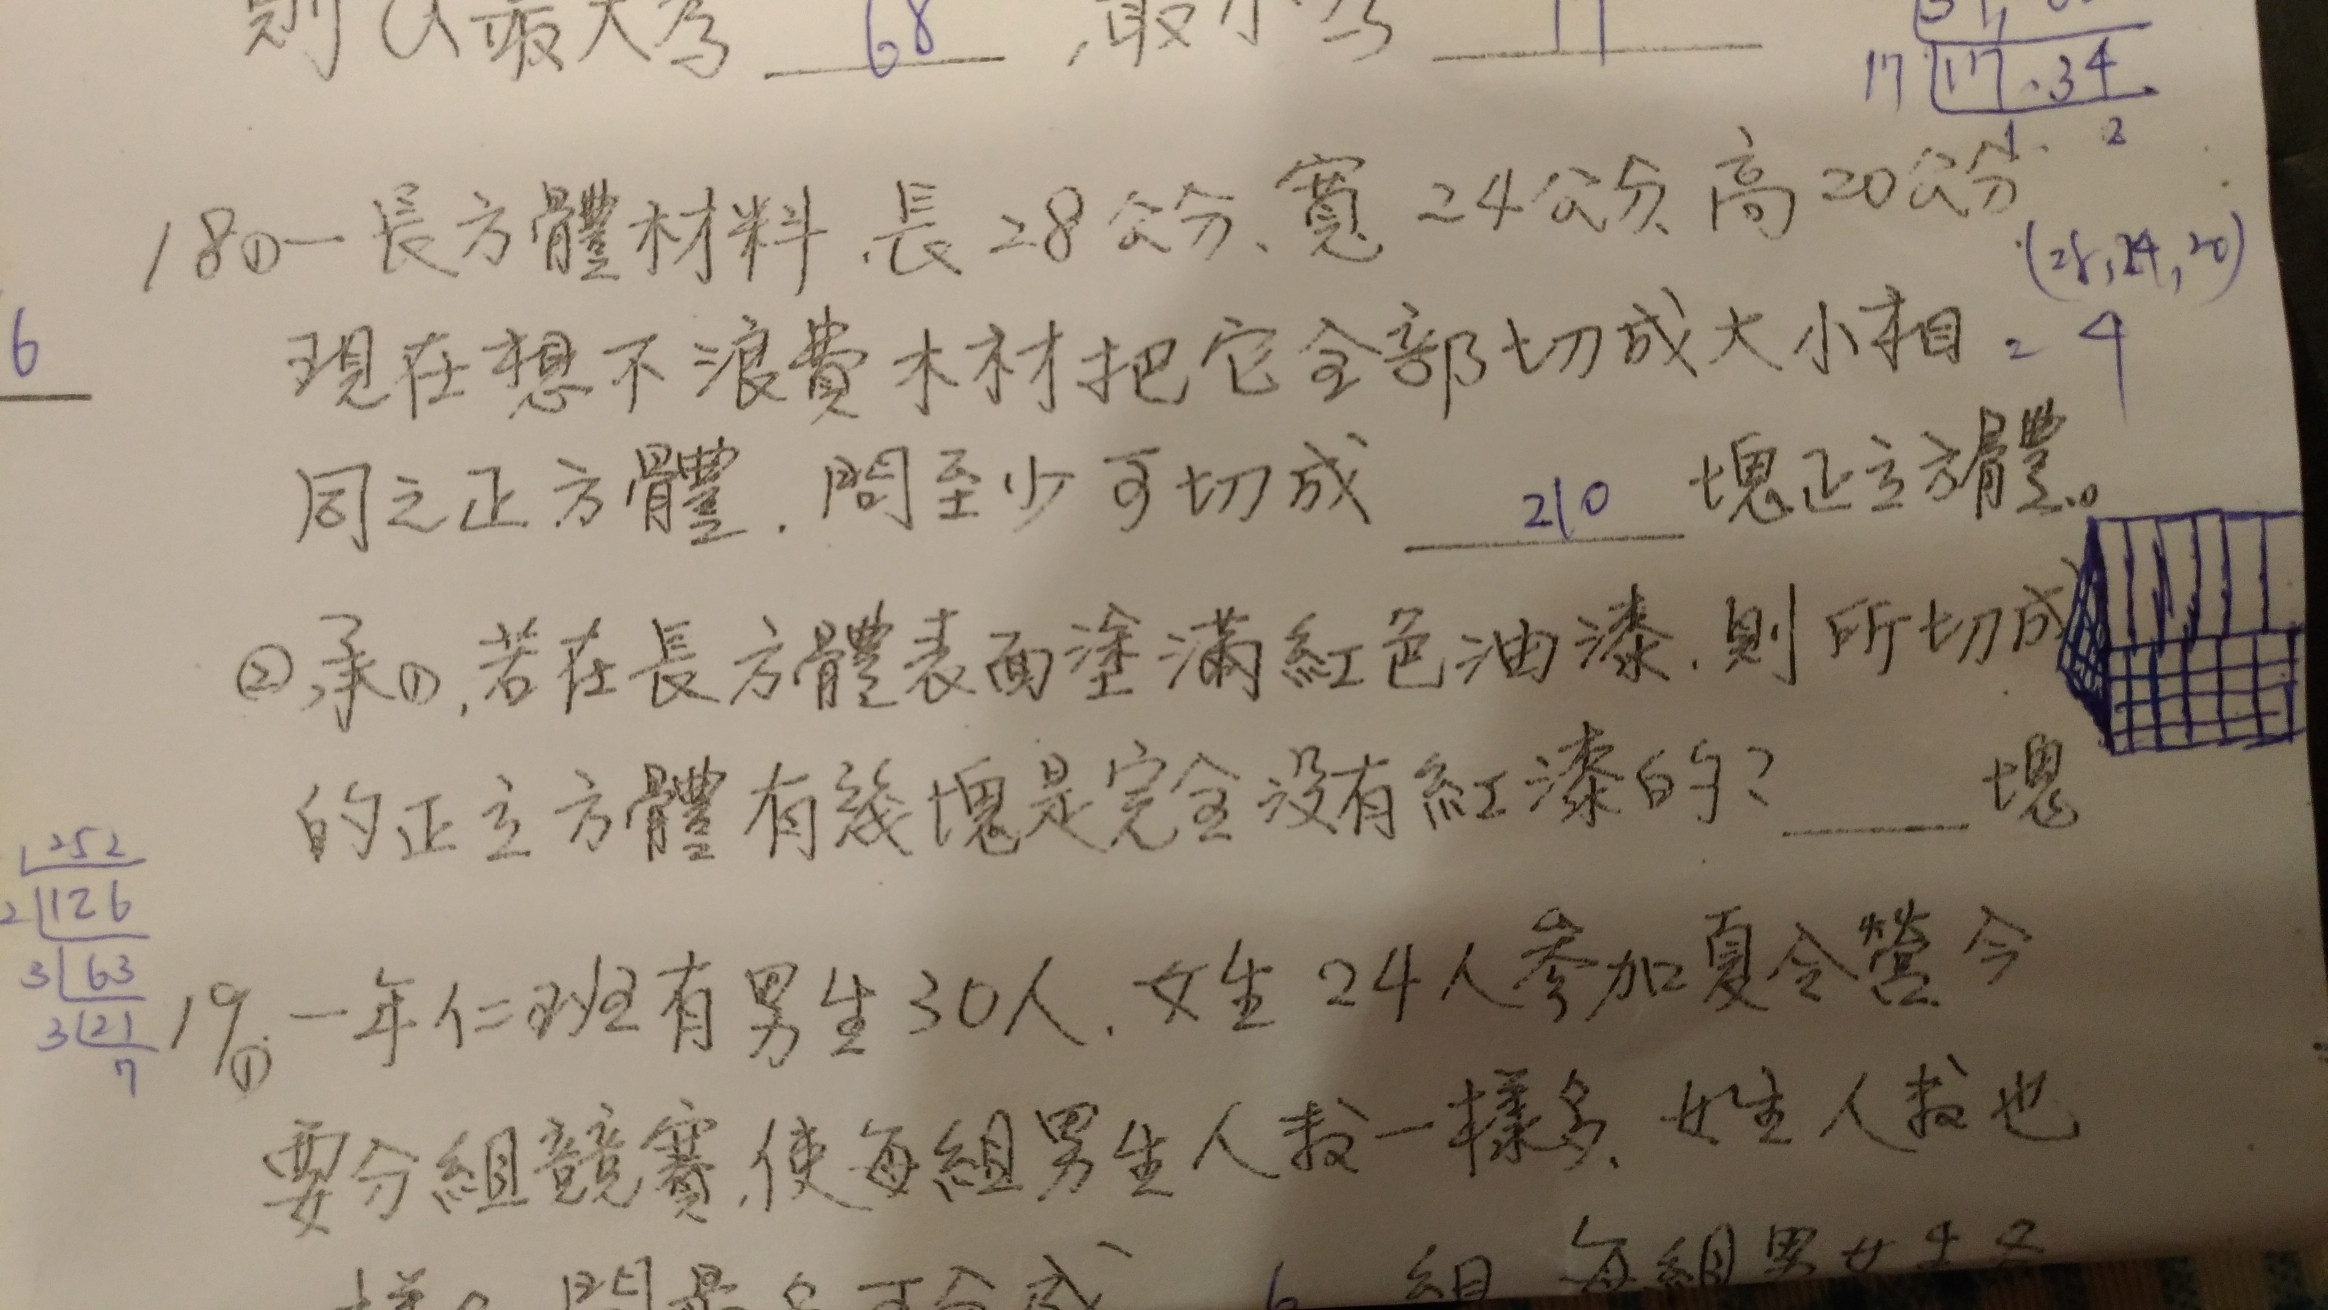 則以最大為 68 ,最小為 17
17 17.34
1. 2
18①一長方體材料,長28公分、寬24公分、高20公分
(28,24,20)
= 4
現在想不浪費木材把它全部切成大小相
6
同之正方體.問至少可切成 210 塊正立方體。
②承①,若在長方體表面塗滿紅色油漆.則所切成
的正立方體有幾塊是完全沒有紅漆的? 塊
252
2 126
3 63
3 21
7
19.① 一年仁班有男生30人.女生24人參加夏令營今
要分組競賽,使每組男生人數一樣多、女生人數也
一樣。問最多可分成 6 組,每組男女生